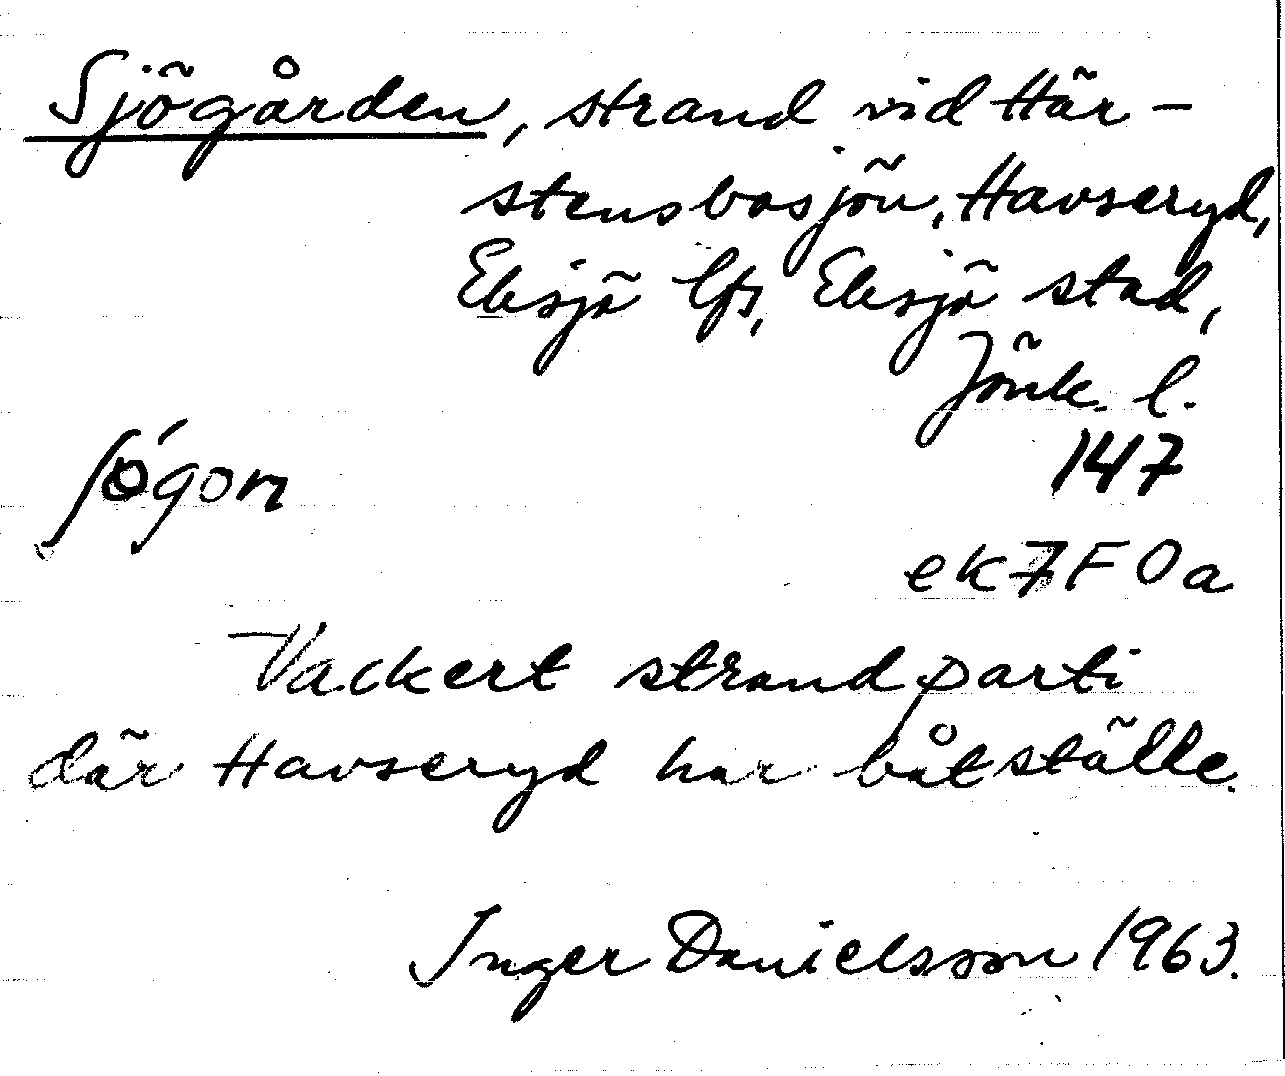 Sjögården, strand vid Här-
stensbosjön, Havseryd,
Eksjö lfs, Eksjö stad,
Jönk. l.
147
ʃø´gon
ek 7 F 0 a
Vackert strandparti
där Havseryd har båtställe.
Inger Danielsson 1963.